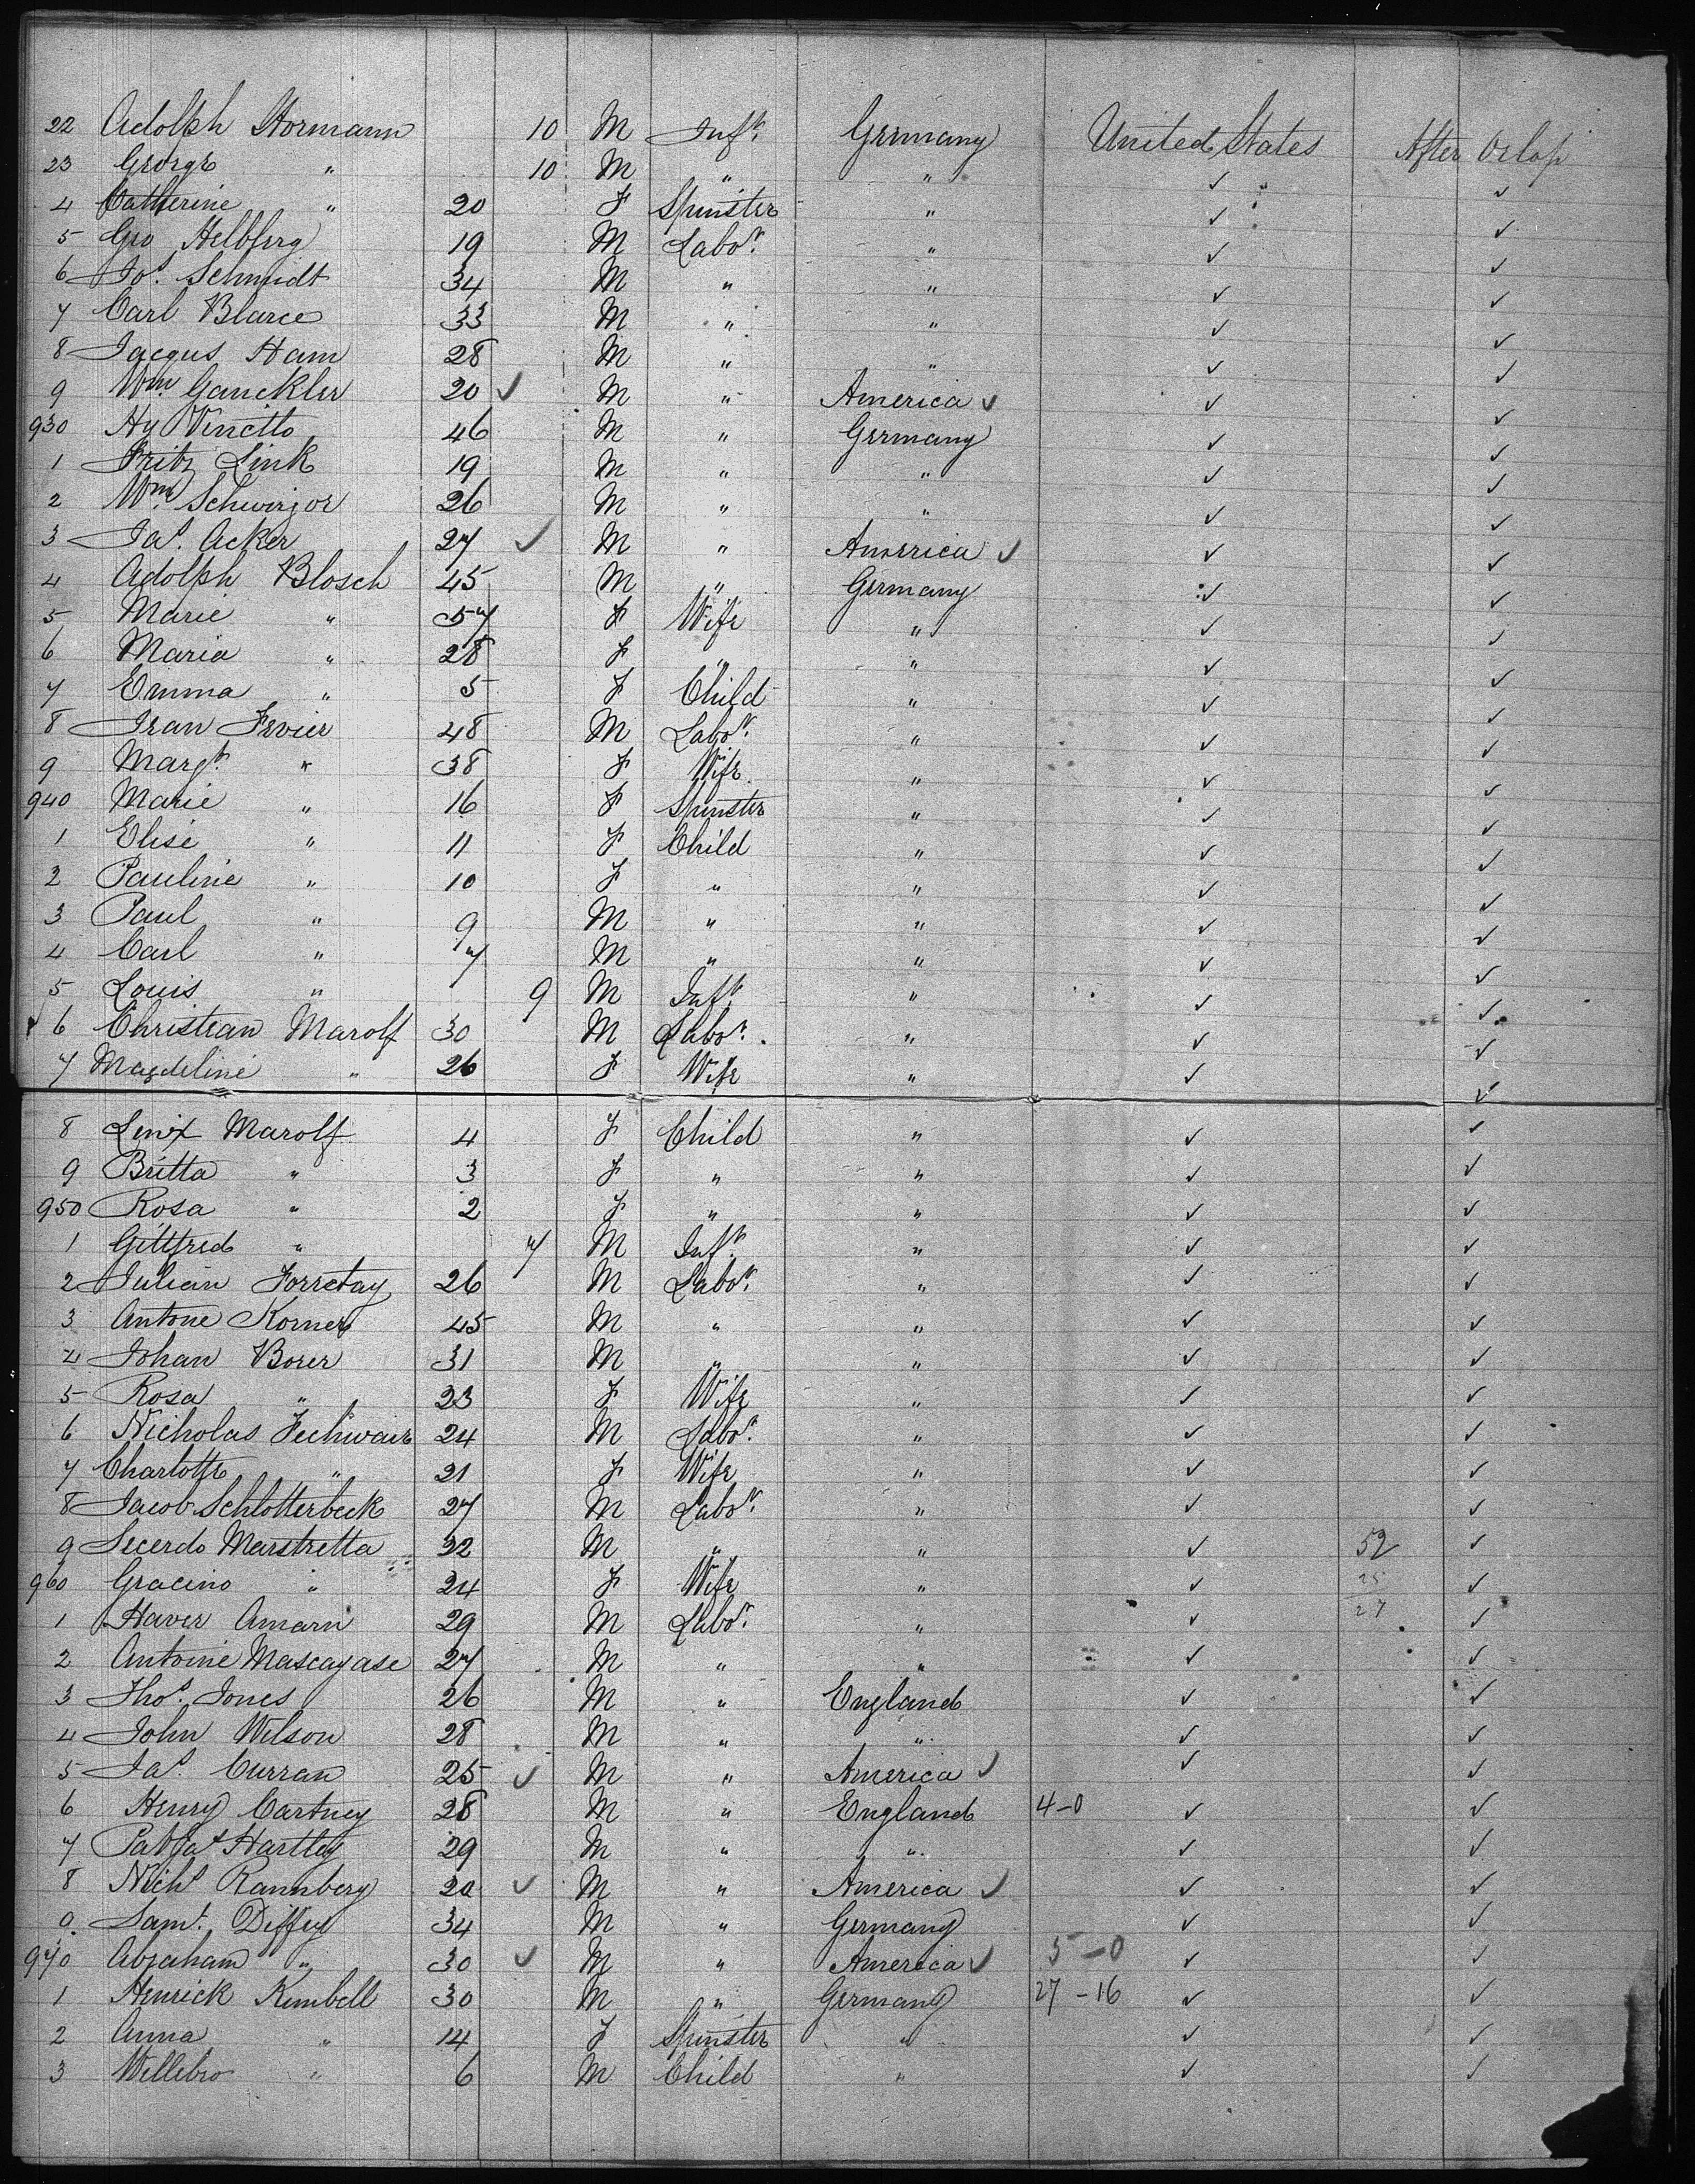 22 Adolph Hormann 10 M Inft. Germany United States After Orlop
23 George " 10 M " " ✓ ✓
4 Catherine " 20 F Spinster " ✓ ✓
5 Geo Helbberg 19 M Labor. " ✓ ✓
6 Jos. Schmidt 34 M " " ✓ ✓
7 Carl Blarce 33 M " " ✓ ✓
8 Jacqus Ham 28 M " " ✓ ✓
9 Wm. Ganckler 20 ✓ M " America ✓ ✓ ✓
930 Hy Vinetto 46 M " Germany ✓ ✓
1 Fritz Link 19 M " " ✓ ✓
2 Wm. Schwinjor 26 M " " ✓ ✓
3 Jas. Acker 27 ✓ M " America ✓ ✓ ✓
4 Adolph Blosch 45 M " Germany ✓ ✓
5 Marie " 57 F Wife " ✓ ✓
6 Maria " 28 F " " ✓ ✓
7 Emma " 5 F Child " ✓ ✓
8 Jean Frvier 48 M Labor. " ✓ ✓
9 Margt. " 38 F Wife " ✓ ✓
940 Marie " 16 F Spinster " ✓ ✓
1 Elise " 11 F Child " ✓ ✓
2 Pauline " 10 F " " ✓ ✓
3 Paul " 9 M " " ✓ ✓
4 Carl " 7 M " " ✓ ✓
5 Louis " 9 M Inft. " ✓ ✓
✓ 6 Christian Marolf 30 M Labor. " ✓ ✓
7 Magdeline " 26 F Wife " ✓ ✓
8 Marolf 4 F Child " ✓ ✓
9 Britta " 3 F " " ✓ ✓
950 Rosa " 2 F " " ✓ ✓
1 Gittfred " 7 M Inft. " ✓ ✓
2 Julian Forretay 26 M Labor. " ✓ ✓
3 Antone Korner 45 M " " ✓ ✓
4 Johan Borer 31 M " " ✓ ✓
5 Rosa " 23 F Wife " ✓ ✓
6 Nicholas Fechwair 24 M Labor. " ✓ ✓
7 Charlotte " 21 F Wife " ✓ ✓
8 Jacob Schlotterbeck 27 M Labor. " ✓ ✓
9 Secerdo Marstretta 32 M " " ✓ 52 ✓
960 Gracino " 24 F Wife " ✓ 25 ✓
1 Haver Amarn 29 M Labor. " ✓ 27 ✓
2 Antoine Mascagase 27 M " " ✓ ✓
3 Thos. Jones 26 M " England ✓ ✓
4 John Wilson 28 M " " ✓ ✓
5 Jas. Curran 25 ✓ M " America ✓ ✓ ✓
6 Henry Cartney 28 M " England 4-0 ✓ ✓
7 Hartley 29 M " " ✓ ✓
8 Nichs Rannberg 20 ✓ M " America ✓ ✓ ✓
9 Saml. Diffey 34 M " Germany ✓ ✓
970 Abraham " 30 ✓ M " America ✓ 5-0 ✓ ✓
1 Henrick Kembell 30 M " Germany 27-16 ✓ ✓
2 Anna " 14 F Spinster " ✓ ✓
3 Willebro " 6 M Child " ✓ ✓